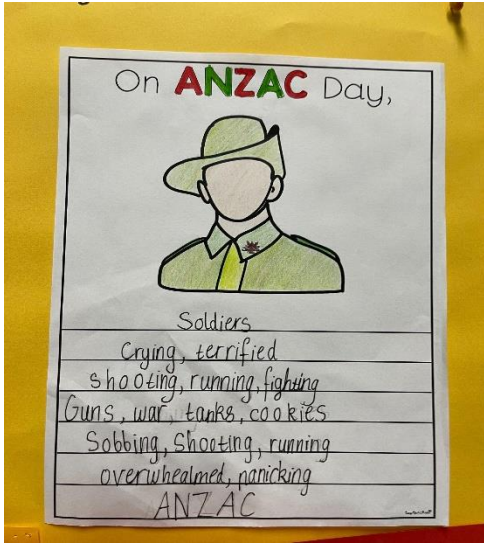 On ANZAC Day,
Soldiers
Crying, terrified
shooting, running, fighting
Guns, war, tanks, cookies
Sobbing, Shooting, running
overwhealmed, panicking
ANZAC